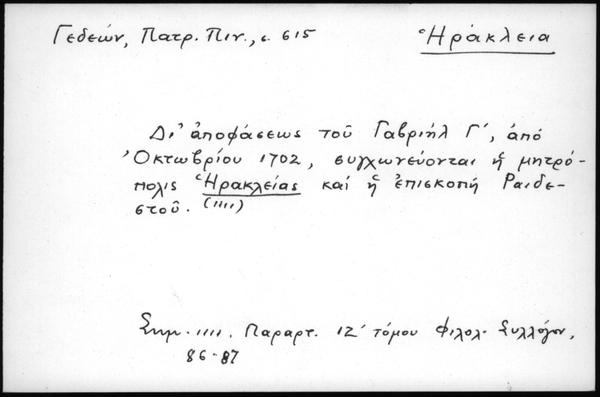 Γεδεών, Πατρ. Πιν., σ. 615 Ἡράκλεια
Δι' ἀποφάσεως τοῦ Γαβριήλ Γ', ἀπό
Ὀκτωβρίου 1702, συγχωνεύονται ἡ μητρό-
πολις Ἡρακλείας καί ἡ ἐπισκοπή Ραιδε-
στοῦ. (1111)
Σημ. 1111. Παραρτ. ΙΖ' τόμου Φιλολ. Συλλόγου,
86-87